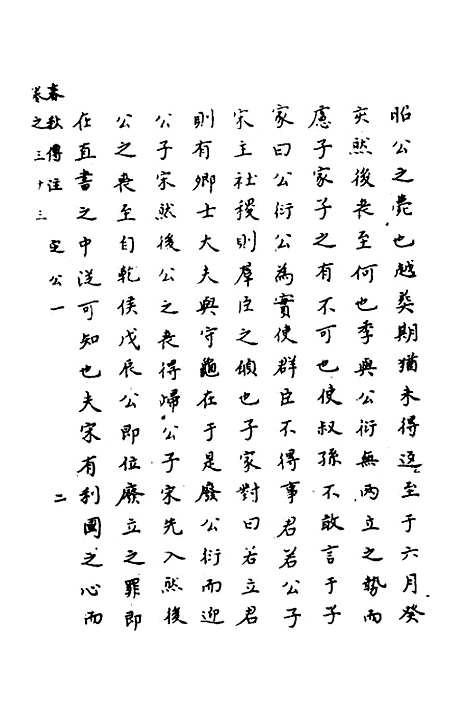 昭公之薨也越葬期猶未得返至于六月癸
亥然後喪至何也季與公衍無兩立之勢而
慮子家子之有不可也使叔孫不敢言于子
家曰公衍公為實使群臣不得事君若公子
宋主社稷則羣臣之願也子家對曰若立君
則有卿士大夫與守龜在于是廢公衍而迎
公子宋然後公之喪得歸公子宋先入然後
公之喪至自乾侯戊辰公即位廢立之罪即
在直書之中從可知也夫宋有利國之心而
春秋傳注
卷之三十三 定公一 二